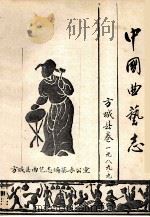 中國曲藝志
方城县卷一九八九九
方城县曲艺志编办公室